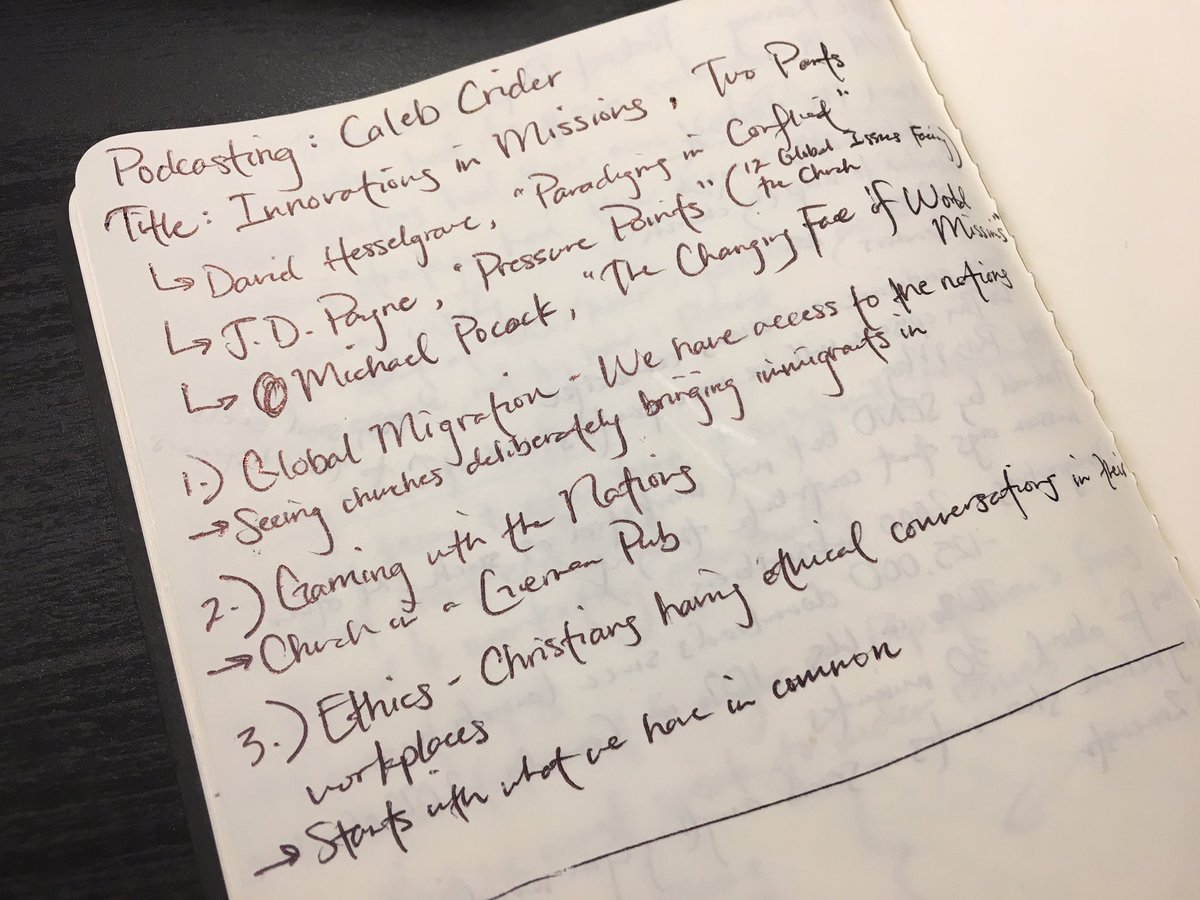 Podcasting: Caleb Crider
Title: Innovations in Missions, Two Parts
↳ David Hesselgrave, "Paradigms in Conflict"
↳ J.D. Payne, "Pressure Points" (12 Global Issues Facing the Church)
↳ Michael Pocock, "The Changing Face of World Missions"
1.) Global Migration - We have access to the nations
→ Seeing churches deliberately bringing immigrants in
2.) Gaming with the Nations
→ Church in a German Pub
3.) Ethics - Christians having ethical conversations in their
workplaces
→ Starts with what we have in common